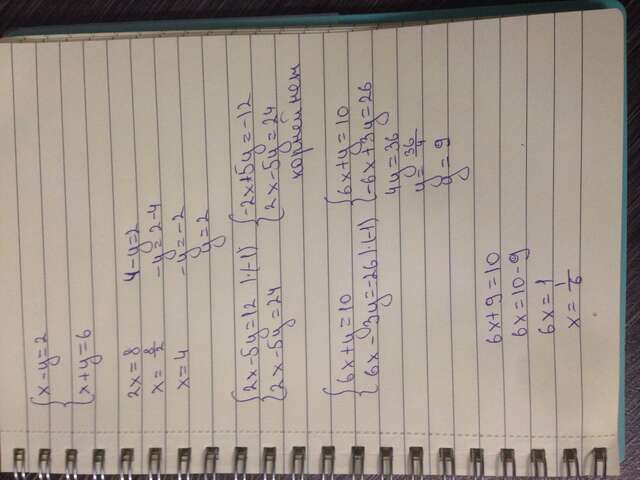 x-y=2
x+y=6
2x=8
x=8/2
x=4
4-y=2
-y=2-4
-y=-2
y=2
2x-5y=12 |·(-1)
2x-5y=24
-2x+5y=-12
2x-5y=24
корней нет
6x+y=10
6x-3y=-26 |·(-1)
6x+y=10
-6x+3y=26
4y=36
y=36/4
y=9
6x+9=10
6x=10-9
6x=1
x=1/6